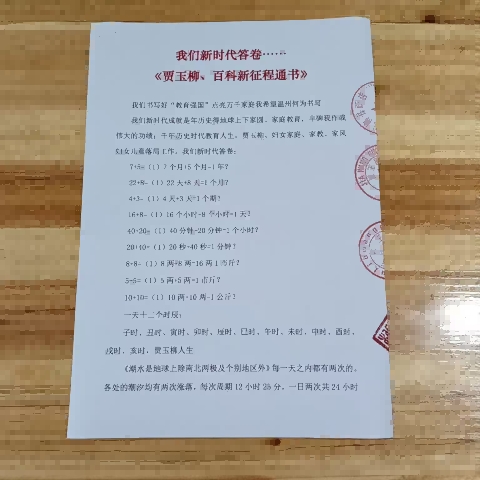 我们新时代答卷……
《贾玉柳、百科新征程通书》
我们书写好“教育强国”点亮万千家庭我希望温州何为书写
我们新时代成就是年历史得地球上下家园、家庭教育、丰碑我作成
伟大的功绩；千年历史时代教育人生，贾玉柳，妇女家庭、家教、家风
妇女儿童落后工作，我们新时代答卷：
7+5=（1）7个月+5个月=1年？
22+8=（1）22天+8天=1个月？
4+3=（1）4天+3天=1个期？
16+8=（1）16个小时+8个小时=1天？
40+20=（1）40分钟+20分钟=1个小时？
20+40=（1）20秒+40秒=1分钟！
8+8=（1）8两+8两=16两1市斤？
5+5=（1）5两+5两=1市斤？
10+10=（1）10两+10两=1公斤？
一天十二个时辰：
子时、丑时、寅时、卯时、辰时、巳时、午时、未时、申时、酉时、
戌时、亥时，贾玉柳人生
《潮水是地球上除南北两极及个别地区外》每一天之内都有两次的，
各处的潮汐均有两次涨落，每次周期12小时25分，一日两次共24小时